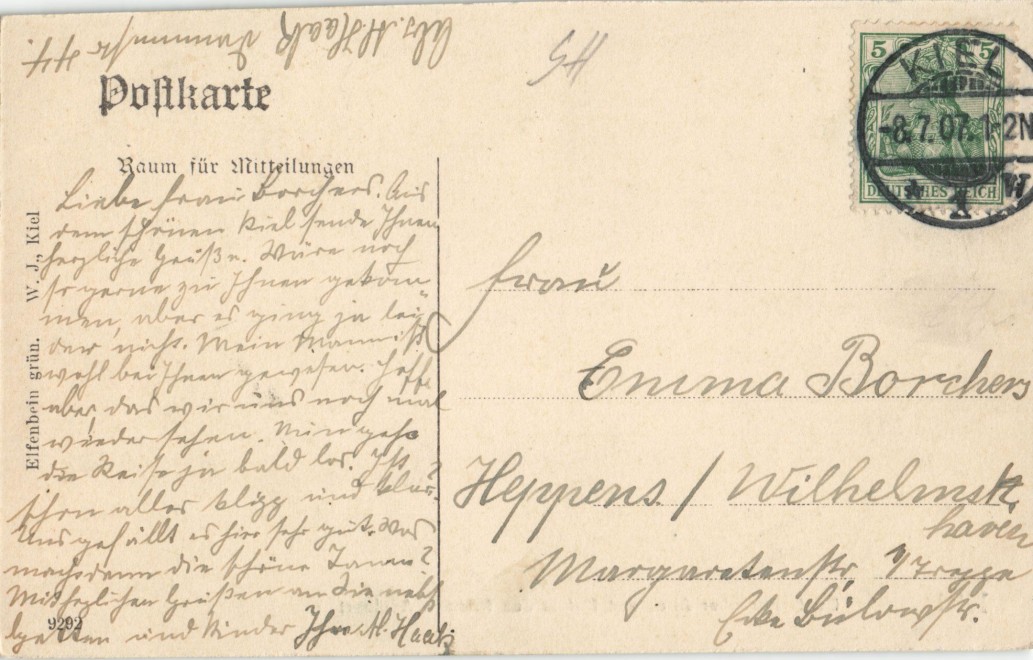 Abs. H. Haak
Postkarte
Raum für Mitteilungen
Liebe Frau Borchers. Aus
dem schönen Kiel sende Ihnen
herzliche Grüße. Wäre noch
so gerne zu Ihnen gekom-
men, aber es ging ja lei
der nicht. Mein Mann ist
wohl bei Ihnen gewesen. Hoffe
aber das wir uns noch mal
wiedersehen. Nun geht
die Reise ja bald los. Ist
schon alles klipp und klar?
Uns gefällt es hier sehr gut. Was
macht denn die schöne
Mit herzlichen Grüßen an Sie nebst
Gatten und Kinder Ihre H. Haak
Elfenbein grün. W. J., Kiel
9292
5 5
DEUTSCHES REICH
KIEL
-8.7.07. 1-2N
* 1 *
Frau
Emma Borchers
Heppens / Wilhelms
haven
Margaretenstr.
Ecke Bülowstr.